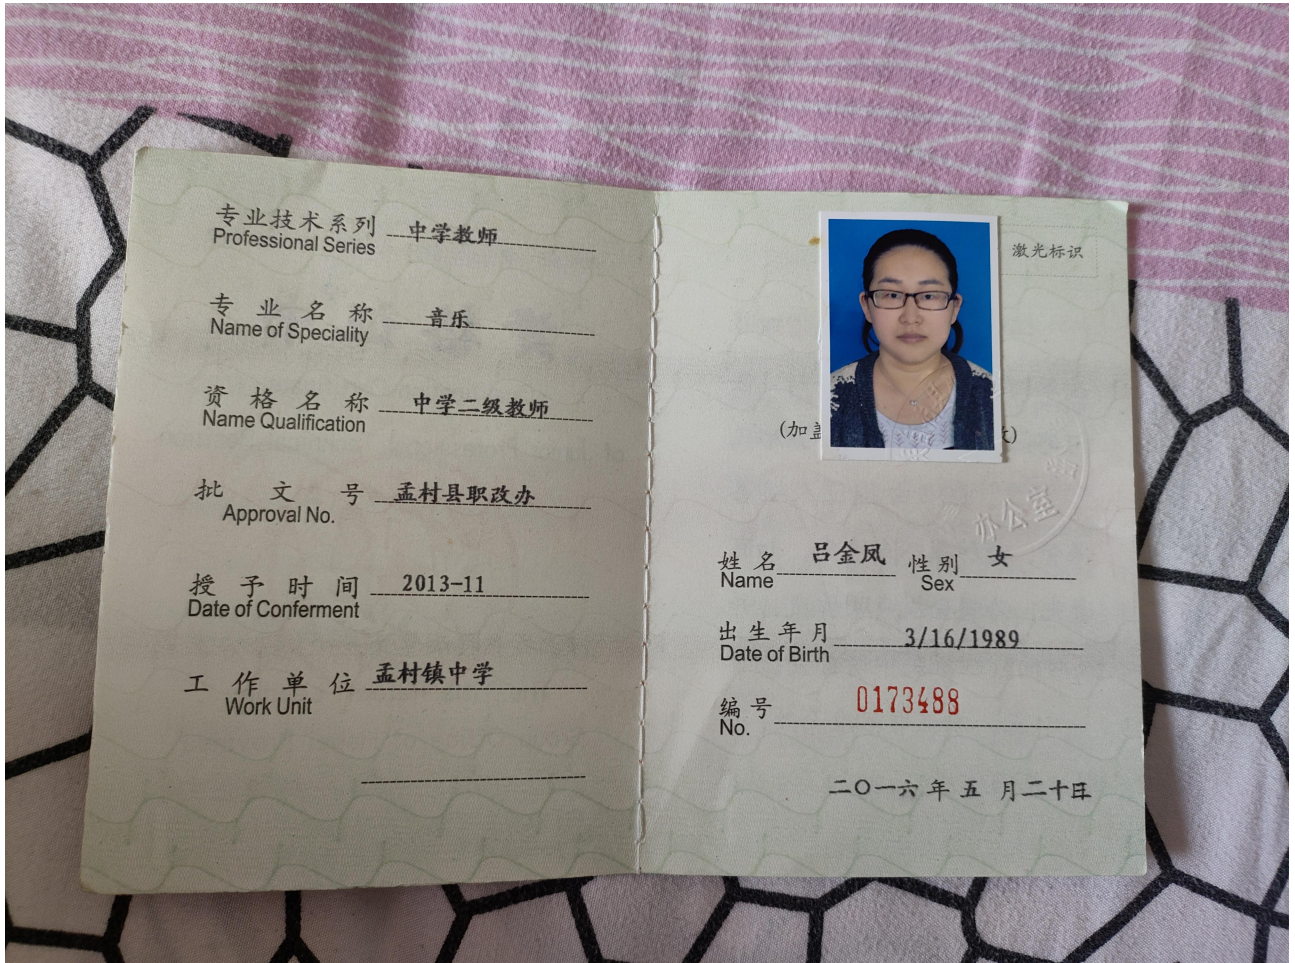 专业技术系列 中学教师
Professional Series
专业名称 音乐
Name of Speciality
资格名称 中学二级教师
Name Qualification
批文号 孟村县职改办
Approval No.
授予时间 2013-11
Date of Conferment
工作单位 孟村镇中学
Work Unit
激光标识
(加盖
)
办公室
姓名 吕金凤 性别 女
Name Sex
出生年月 3/16/1989
Date of Birth
编号 0173488
No.
二〇一六年五月二十日